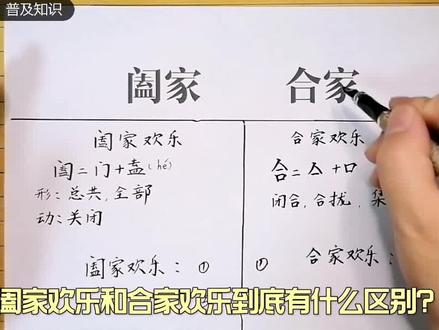 普及知识
阖家 合家
阖家欢乐 合家欢乐
阖=门+盍(hé) 合=亼+口
形:总共,全部 闭合,合拢,集
动:关闭
阖家欢乐:① ① 合家欢乐:
阖家欢乐和合家欢乐到底有什么区别?